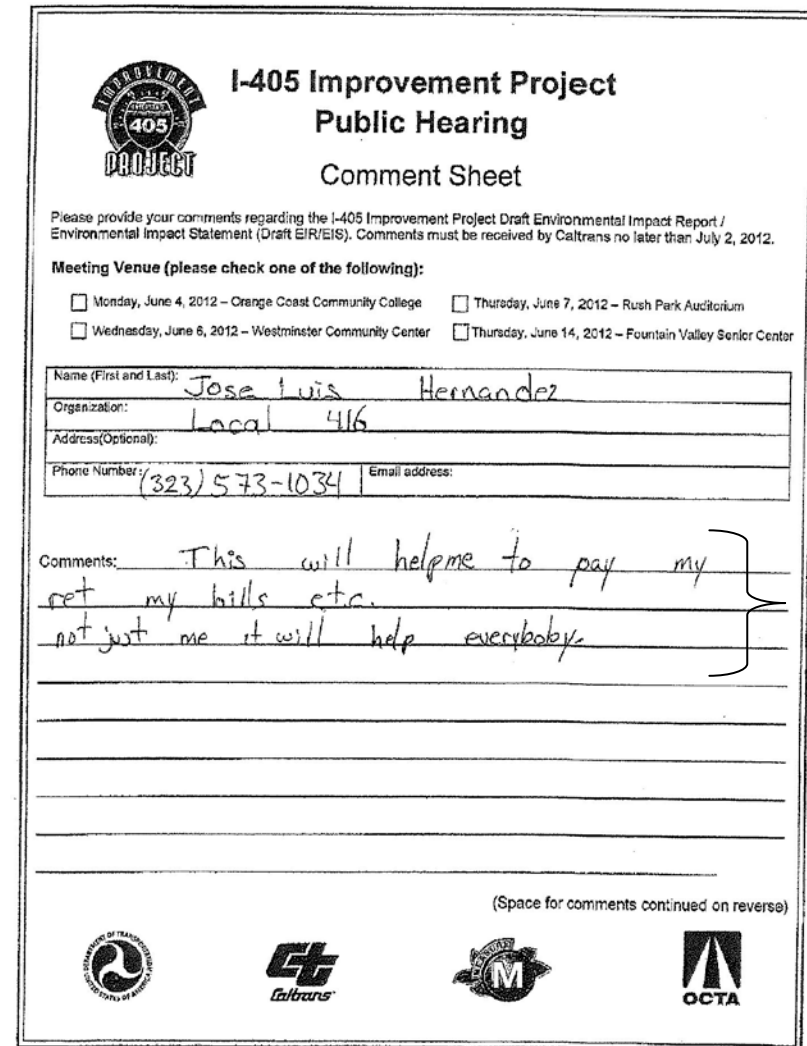 IMPROVEMENT
405
PROJECT
I-405 Improvement Project
Public Hearing
Comment Sheet
Please provide your comments regarding the I-405 Improvement Project Draft Environmental Impact Report /
Environmental Impact Statement (Draft EIR/EIS). Comments must be received by Caltrans no later than July 2, 2012.
Meeting Venue (please check one of the following):
Monday, June 4, 2012 – Orange Coast Community College
Thursday, June 7, 2012 – Rush Park Auditorium
Wednesday, June 6, 2012 – Westminster Community Center
Thursday, June 14, 2012 – Fountain Valley Senior Center
Name (First and Last): Jose Luis Hernandez
Organization: Local 416
Address(Optional):
Phone Number: (323) 573-1034 Email address:
Comments: This will helpme to pay my
ret my bills etc.
not just me it will help everyboby.
(Space for comments continued on reverse)
DEPARTMENT OF TRANSPORTATION
UNITED STATES OF AMERICA
Caltrans
MEASURE
M
OCTA